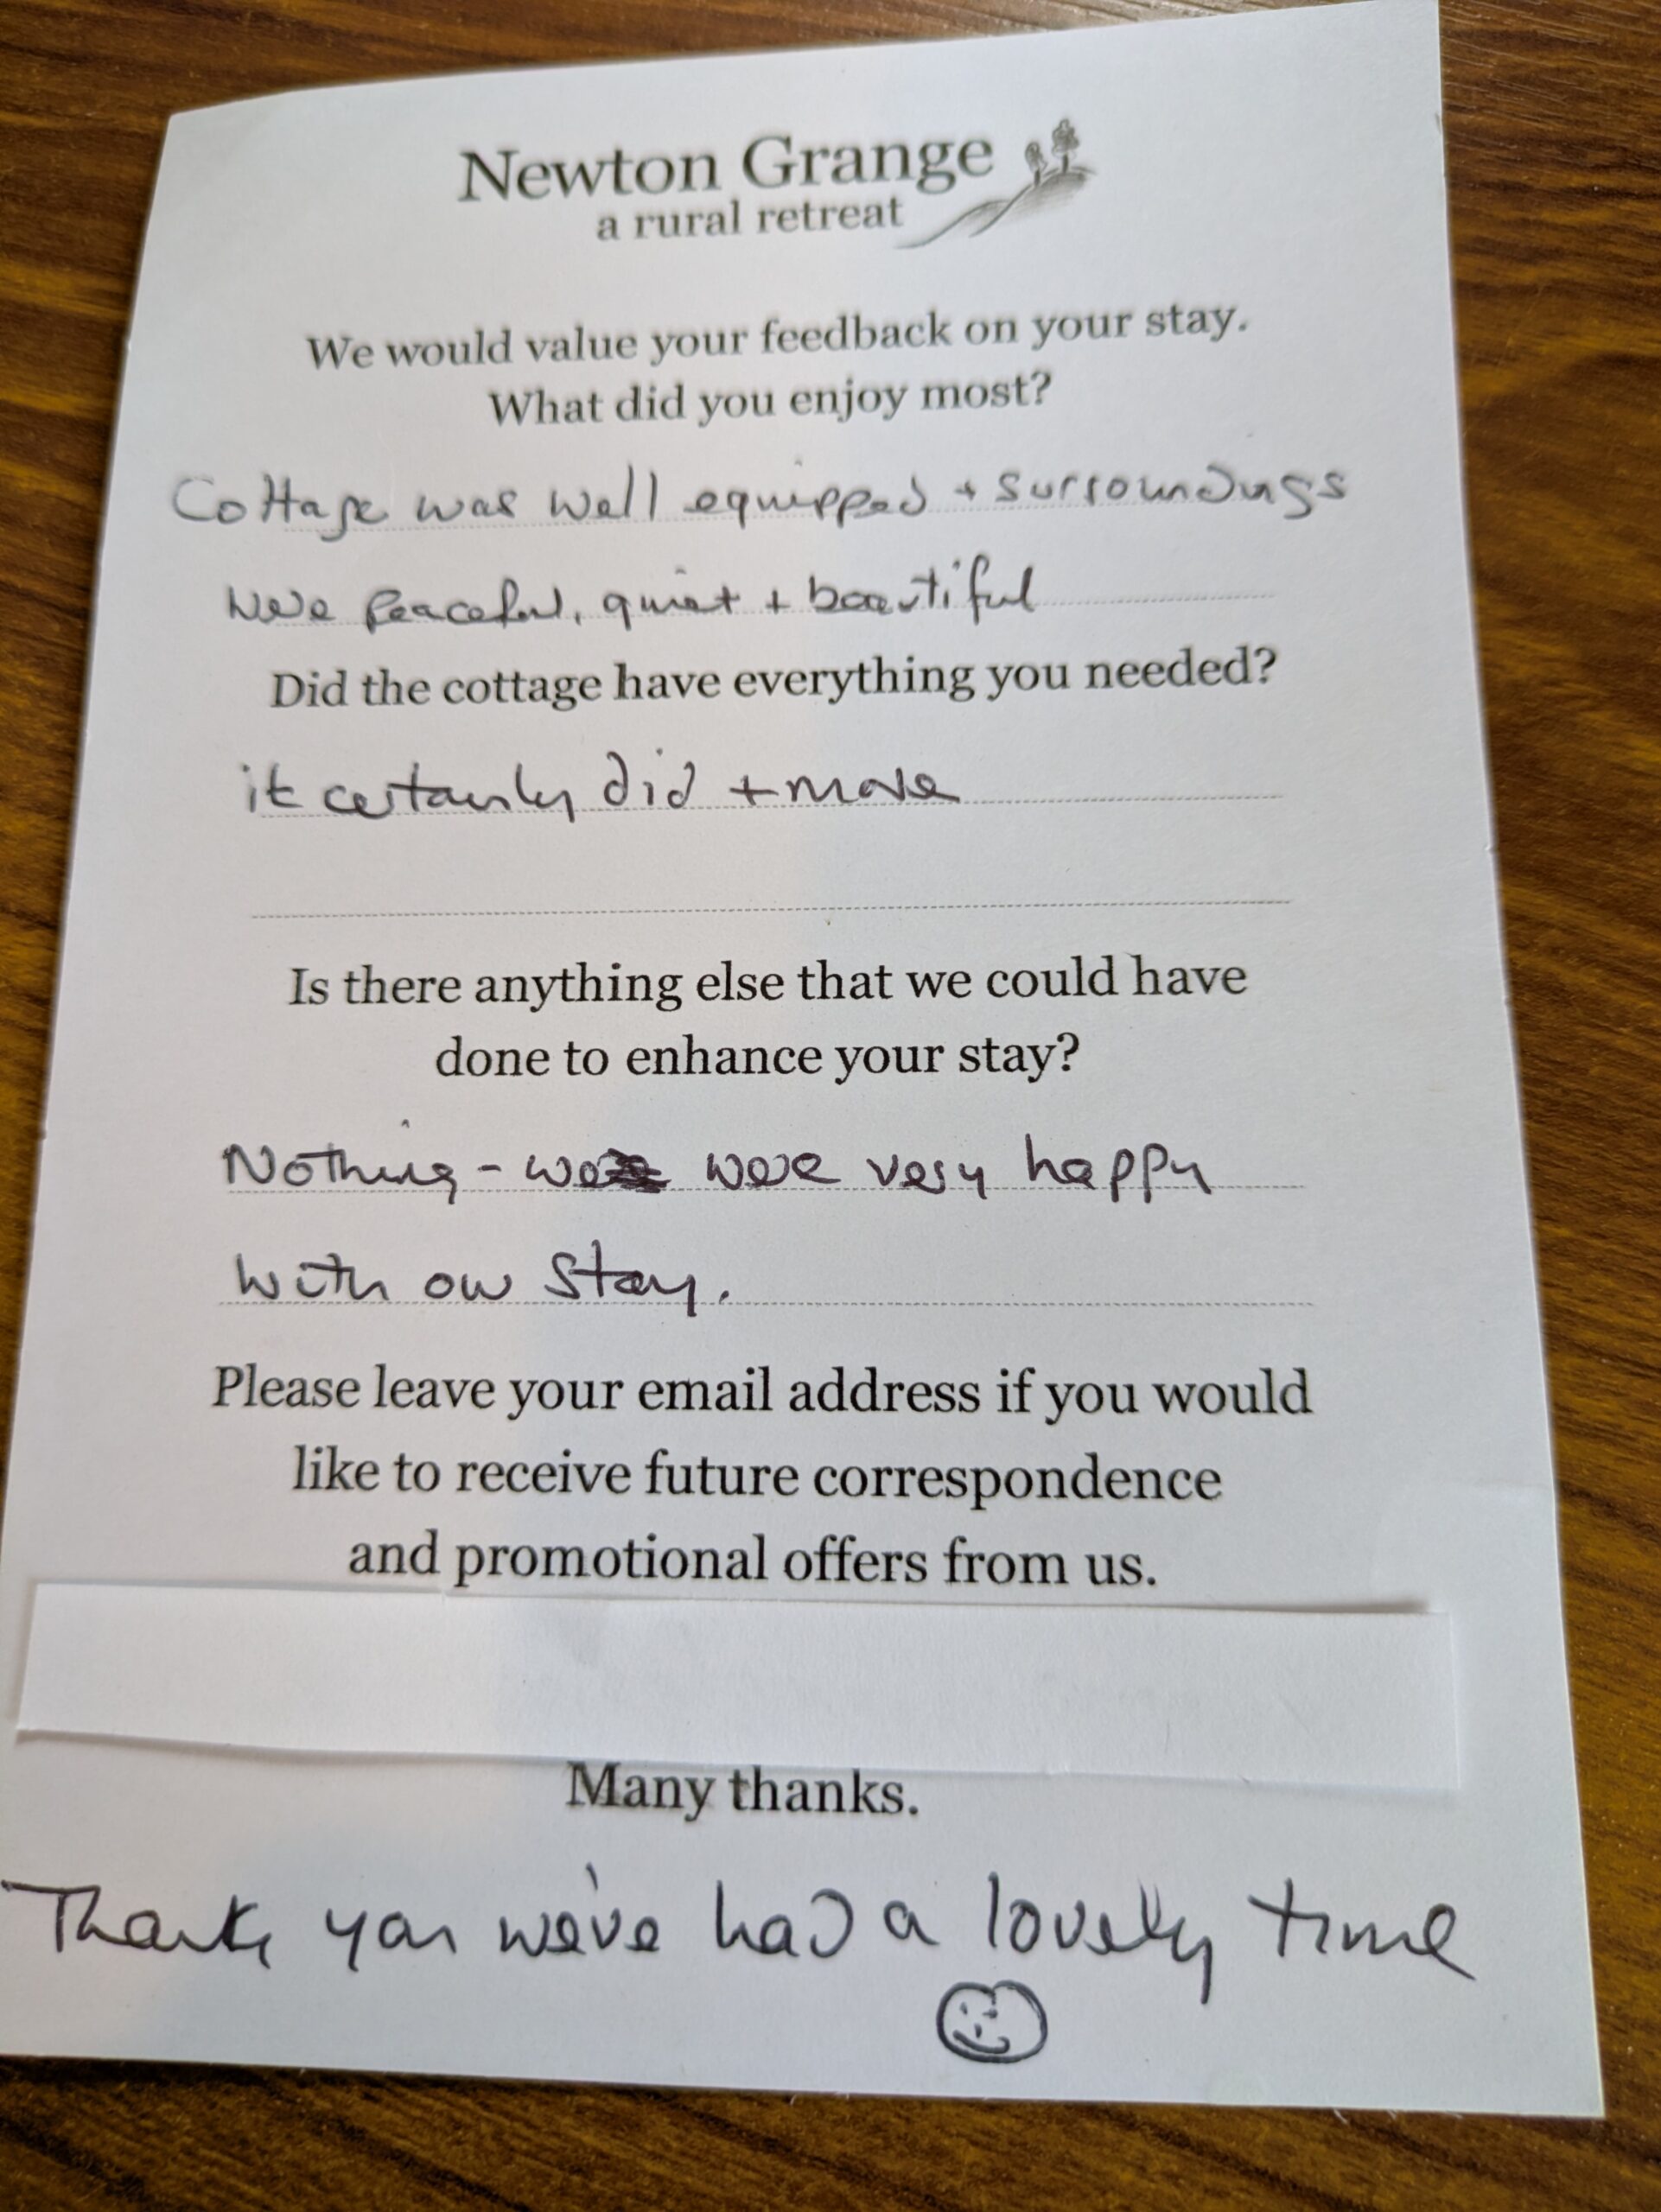 Newton Grange
a rural retreat
We would value your feedback on your stay.
What did you enjoy most?
Cottage was well equipped + surroundings
were peaceful, quiet + beautiful
Did the cottage have everything you needed?
it certainly did + more
Is there anything else that we could have
done to enhance your stay?
Nothing - we were very happy
with our stay.
Please leave your email address if you would
like to receive future correspondence
and promotional offers from us.
Many thanks.
Thank you we've had a lovely time